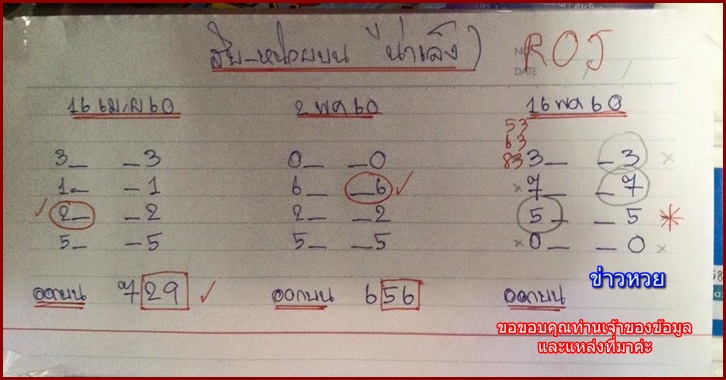 สิบ-หน่วยบน (น่าเล็ง)
ROJ
NO
DATE / /
16 เม.ย 60
2 พค 60
16 พค 60
53
63
83
3_ _3
1_ _1
✓ 2_ _2
5_ _5
0_ _0
6_ _6 ✓
2_ _2
5_ _5
3_ _3 ×
×7_ _7
5_ _5 *
×0_ _0 ×
ออกบน 729 ✓
ออกบน 656
ออกบน
ข่าวหวย
ขอขอบคุณท่านเจ้าของข้อมูล
และแหล่งที่มาค่ะ